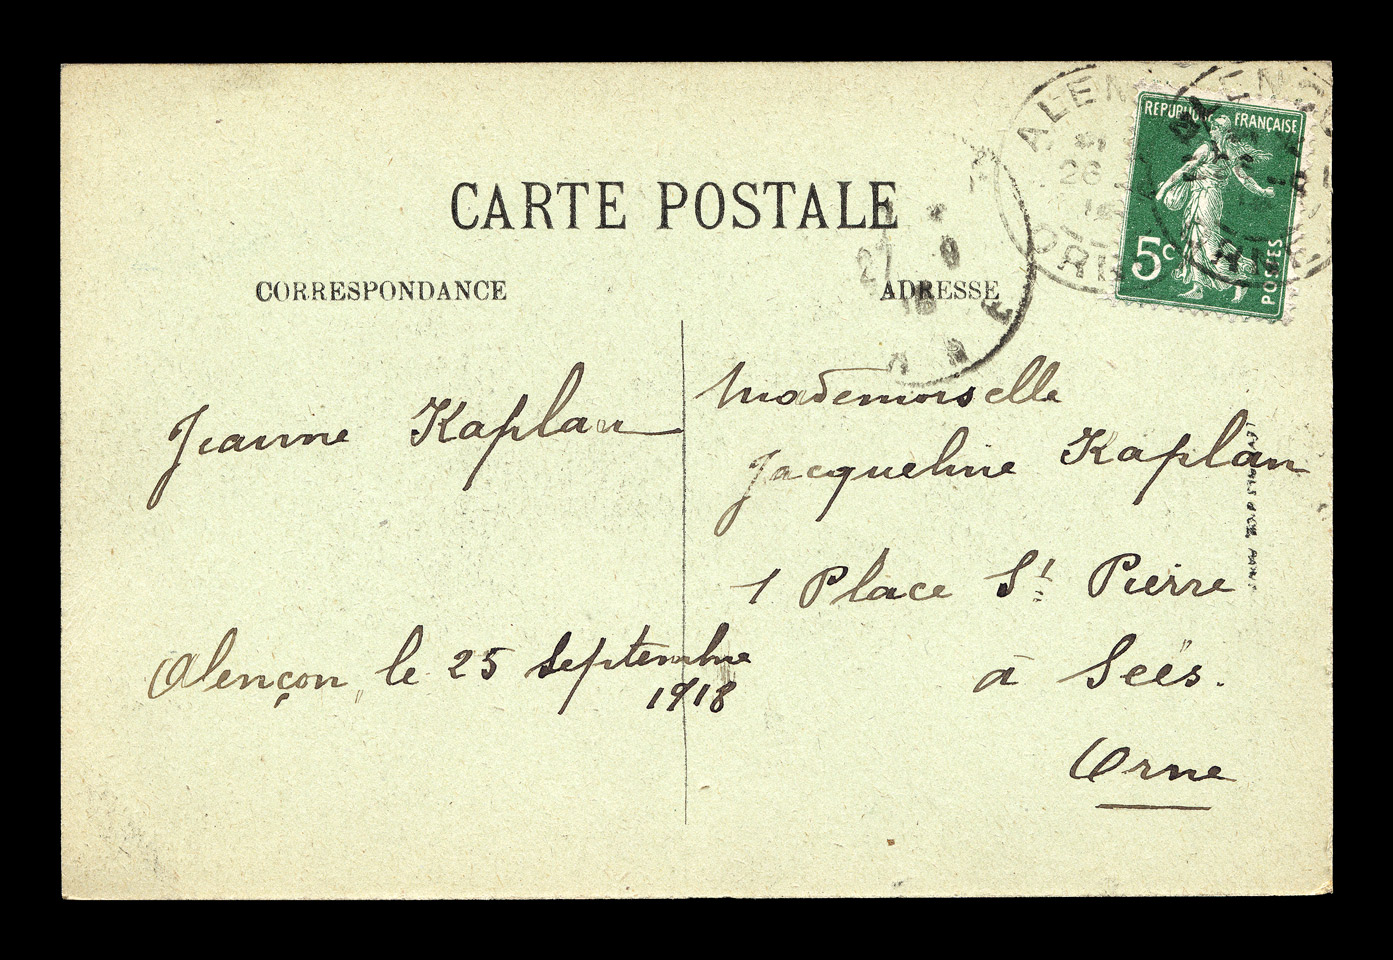 CARTE POSTALE
CORRESPONDANCE
ADRESSE
REPUBLIQUE FRANÇAISE
5c
POSTES
ALEN
26
ORNE
27 9
18
Jeanne Kaplan
Mademoiselle
Jacqueline Kaplan
1 Place St Pierre
à Seës.
Orne
Alençon, le 25 Septembre
1918